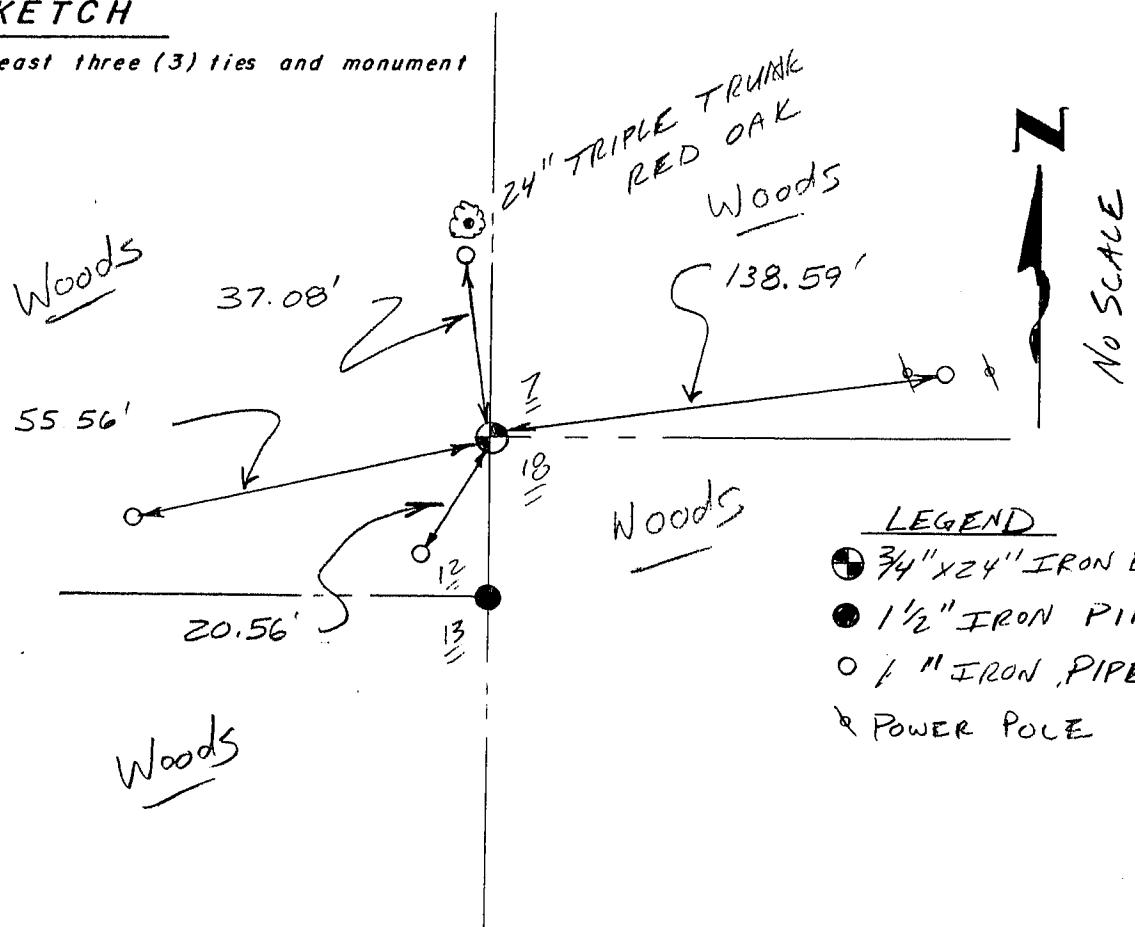 KETCH
east three (3) ties and monument
24" TRIPLE TRUNK
RED OAK
Woods
Woods
37.08'
138.59'
N
No SCALE
55.56'
7
18
Woods
12
13
20.56'
LEGEND
3/4" x 24" IRON
1 1/2" IRON PI
1" IRON PIPE
POWER POLE
Woods